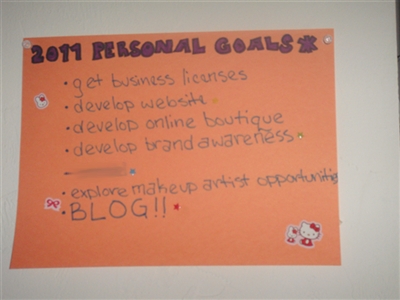 2011 PERSONAL GOALS*
• get business licenses
• develop website
• develop online boutique
• develop brand awareness
•
• explore makeup artist opportunities
• BLOG!!